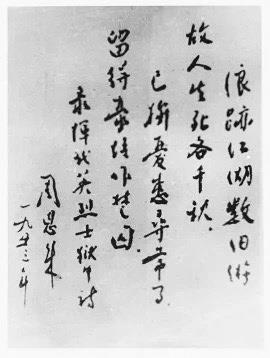 浪跡江湖數旧游
故人生死各千秋、
已拚憂患尋常事
留得豪情作楚囚
录惲代英烈士獄中詩
周恩来
一九五三年